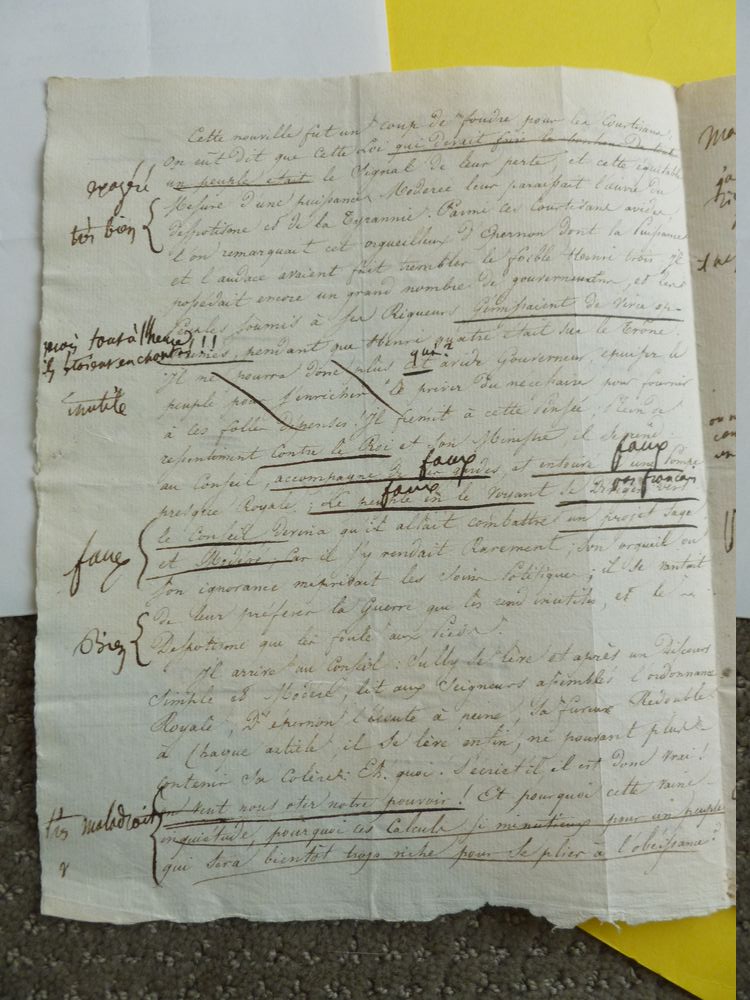 Cette nouvelle fut un coup de foudre pour les Courtisans.
on eut dit que cette Loi qui devait faire le bonheur de tout
exagéré
un peuple etait le Signal de leur perte, et cette équitable
Mesure d'une puissance Moderée leur paraissait l'œuvre du
très bien
despotisme et de la Tyrannie. Parmi ces Courtisans avides
l'on remarquait cet orgueilleux d'Epernon dont la puissance
et l'audace avaient fait trembler le foible Henri trois. Il
possedait encore un grand nombre de gouvernements, et les
Peuples soumis à ses Rigueurs Gemissaient de vivre
mais tout à l'heure
ils étoient enchantés !!!
pendant que Henri quatre était sur le Trône.
qui?
Il ne pourra donc plus cet avide Gouverneur, epuiser le
inutile
peuple pour s'enrichir le priver du necessaire pour fournir
à ses folles depenses! Il fremit à cette pensée: Plein de
ressentiment Contre le Roi et son Ministre il se rend
faux
faux
au Conseil, accompagné de ses gardes, et entouré d'une Pompe
faux
pas français
presque Royale. Le peuple en le voyant se Diriger vers
le Conseil devina qu'il allait combattre un projet sage
faux
et Modéré, Car il s'y rendait Rarement; Son orgueil ou
Son ignorance meprisait les Soins Politiques; il se vantait
de leur préférer la Guerre que les rend inutiles, et le
Bien
Despotisme que les foule aux Pieds.
Il arrive au Conseil: Sully se lève et après un Discours
Simple et Modéré, lit aux Seigneurs assemblés l'ordonnance
Royale, D'epernon l'écoute à peine, Sa fureur Redouble
à Chaque article, il se lève enfin, ne pouvant plus
Contenir Sa Colère: Eh quoi! S'écriet il il est donc vrai!
très maladroit
on veut nous oter notre pouvoir! Et pourquoi cette vaine
inquiétude, pourquoi ces Calculs si minutieux pour un peuple
qui sera bientôt trop riche pour se plier à l'obéissance?